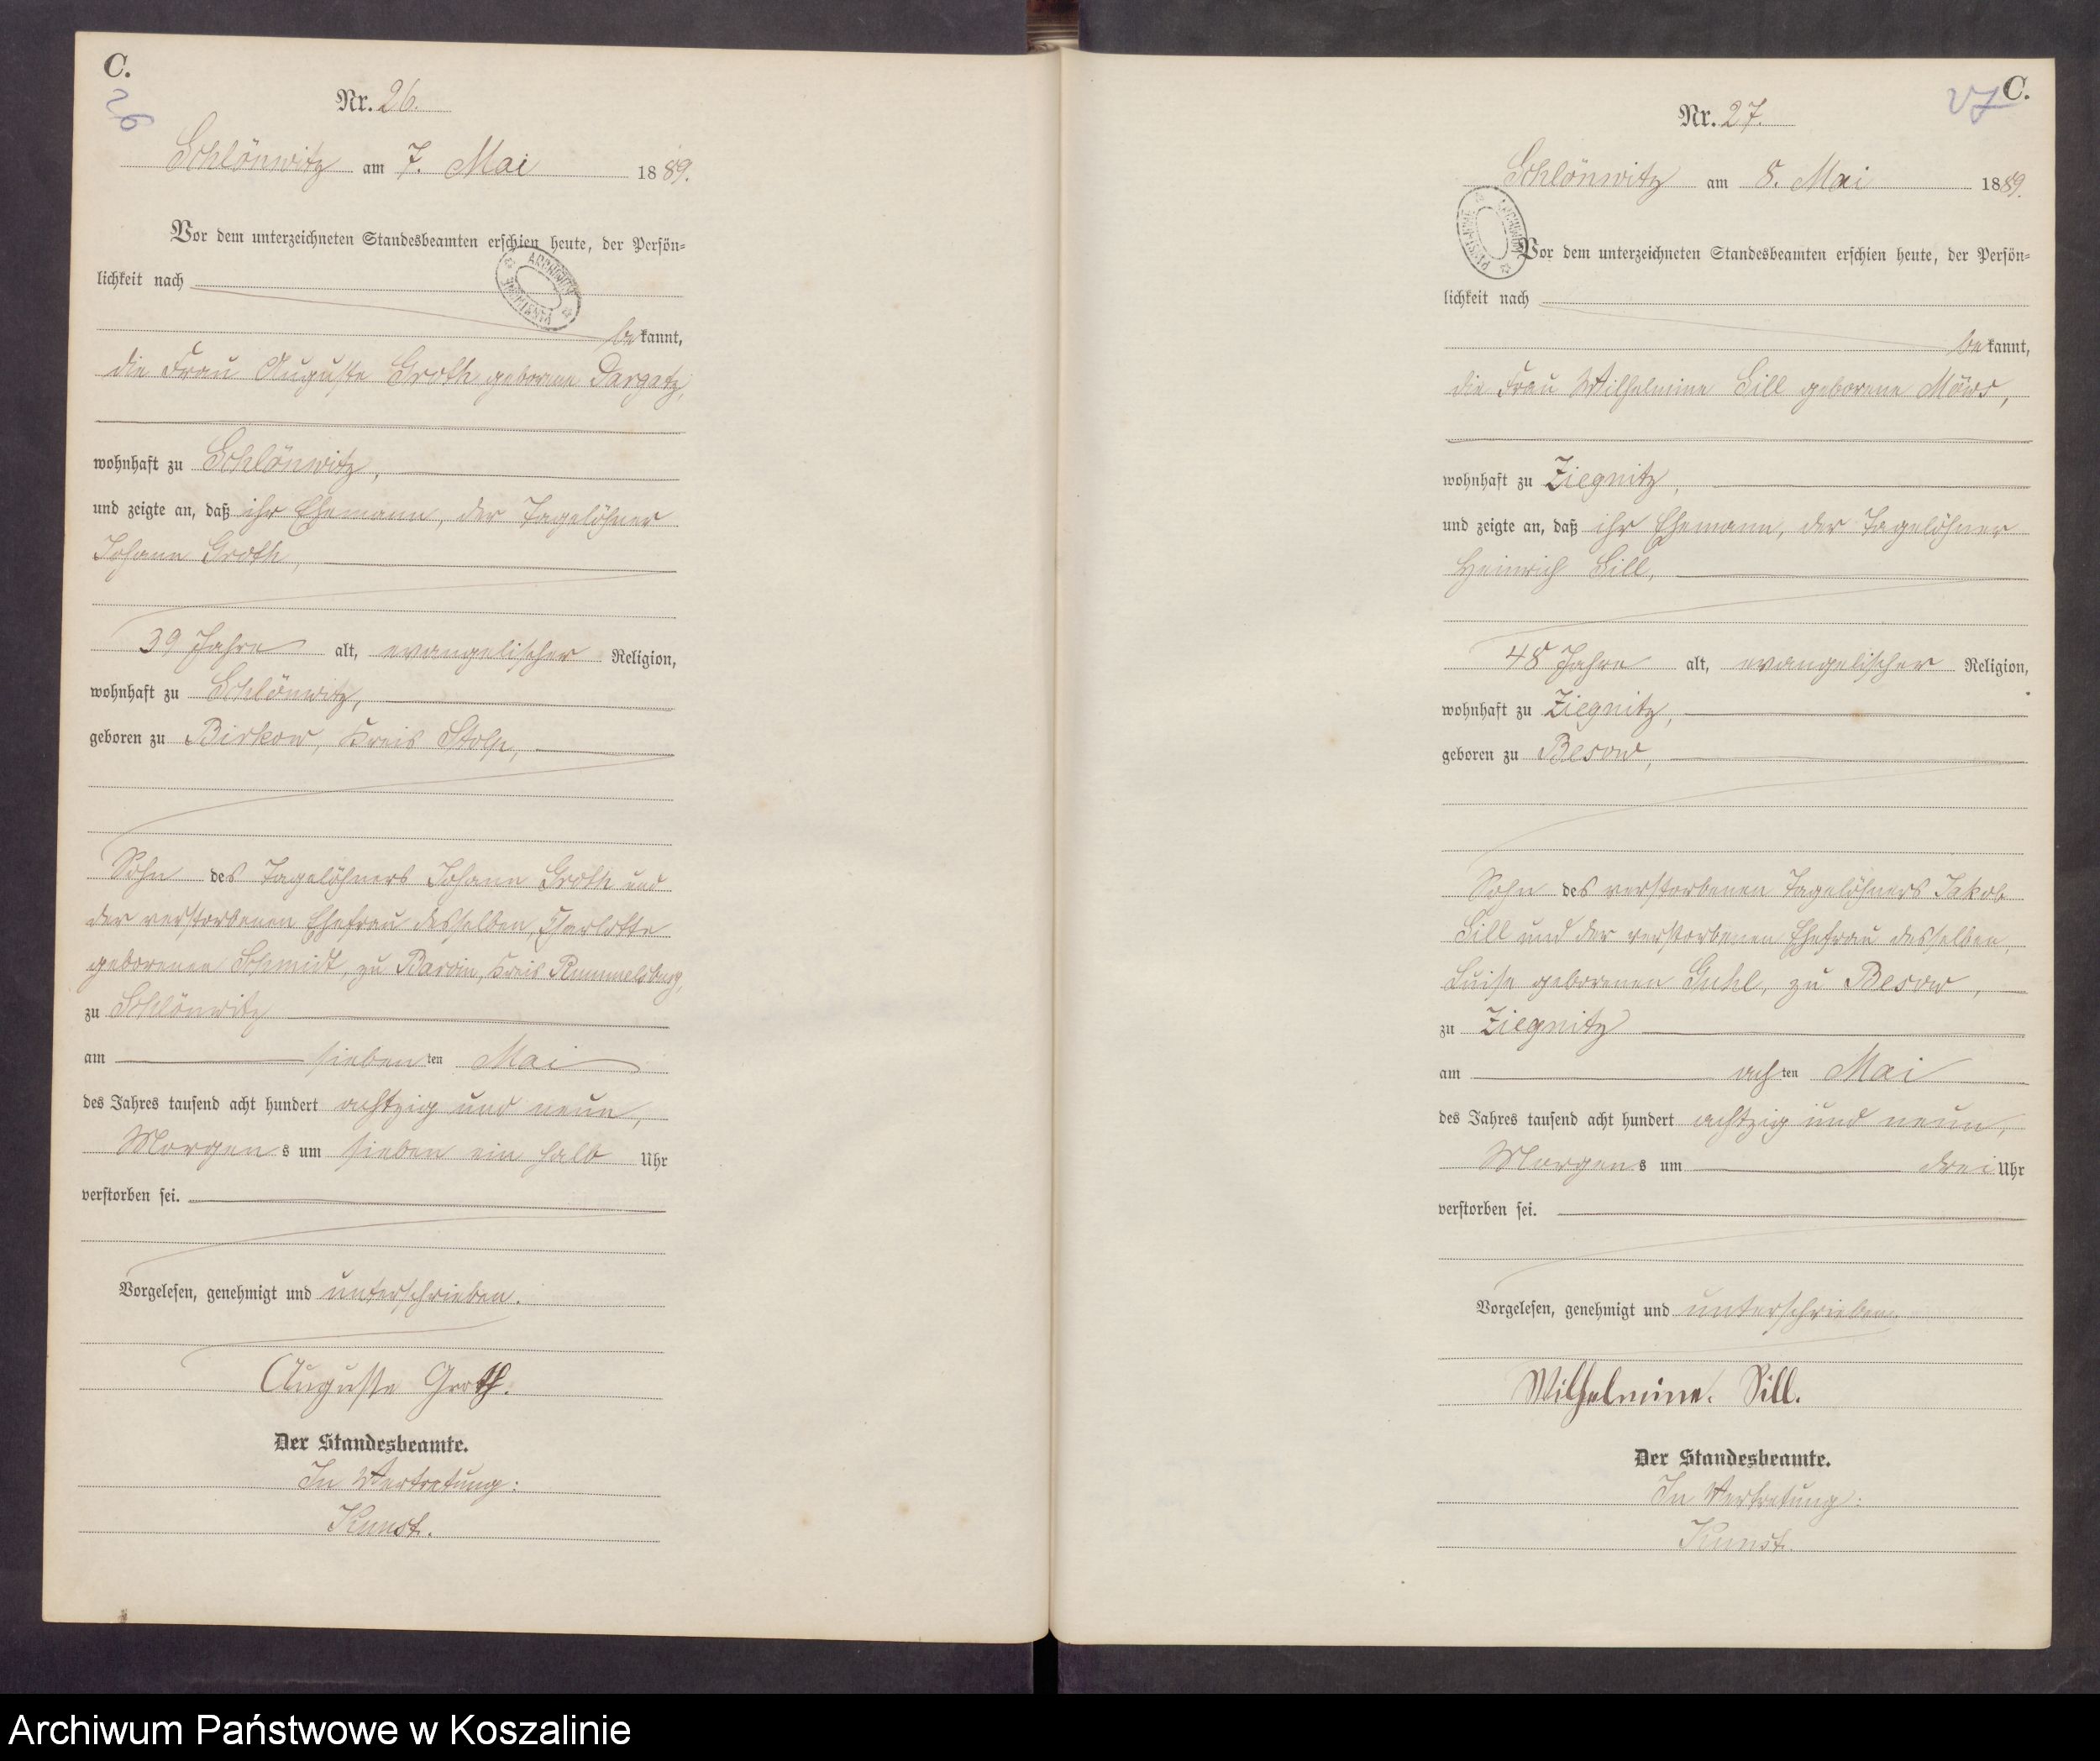 C.
26
Nr. 26.
Schlönwitz am 7. Mai 1889.
Vor dem unterzeichneten Standesbeamten erschien heute, der Persön=
lichkeit nach
bekannt,
die Frau Auguste Groth geborene Dargatz,
wohnhaft zu Schlönwitz,
und zeigte an, daß ihr Ehemann, der Tagelöhner
Johann Groth,
39 Jahre alt, evangelischer Religion,
wohnhaft zu Schlönwitz,
geboren zu Birkow, Kreis Stolp,
Sohn des Tagelöhners Johann Groth und
der verstorbenen Ehefrau desselben, Charlotte
geborenen Schmidt, zu Barvin, Kreis Rummelsburg,
zu Schlönwitz
am siebenten Mai
des Jahres tausend acht hundert achtzig und neun,
Morgens um sieben ein halb Uhr
verstorben sei.
Vorgelesen, genehmigt und unterschrieben.
Auguste Groth.
Der Standesbeamte.
In Vertretung:
Kunst.
C.
27
Nr. 27.
Schlönwitz am 8. Mai 1889.
Vor dem unterzeichneten Standesbeamten erschien heute, der Persön=
lichkeit nach
bekannt,
die Frau Wilhelmine Sill geborene Mews,
wohnhaft zu Ziegnitz,
und zeigte an, daß ihr Ehemann, der Tagelöhner
Heinrich Sill,
48 Jahre alt, evangelischer Religion,
wohnhaft zu Ziegnitz,
geboren zu Besow,
Sohn des verstorbenen Tagelöhners Jakob
Sill und der verstorbenen Ehefrau desselben,
Luise geborenen Guhl, zu Besow,
zu Ziegnitz
am achten Mai
des Jahres tausend acht hundert achtzig und neun,
Morgens um drei Uhr
verstorben sei.
Vorgelesen, genehmigt und unterschrieben.
Wilhelmine. Sill.
Der Standesbeamte.
In Vertretung:
Kunst.
Archiwum Państwowe w Koszalinie